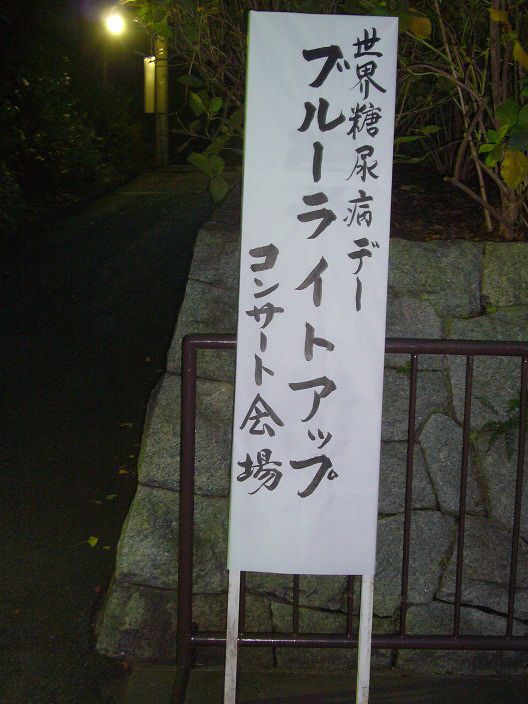 世界糖尿病デー
ブルーライトアップ
コンサート会場